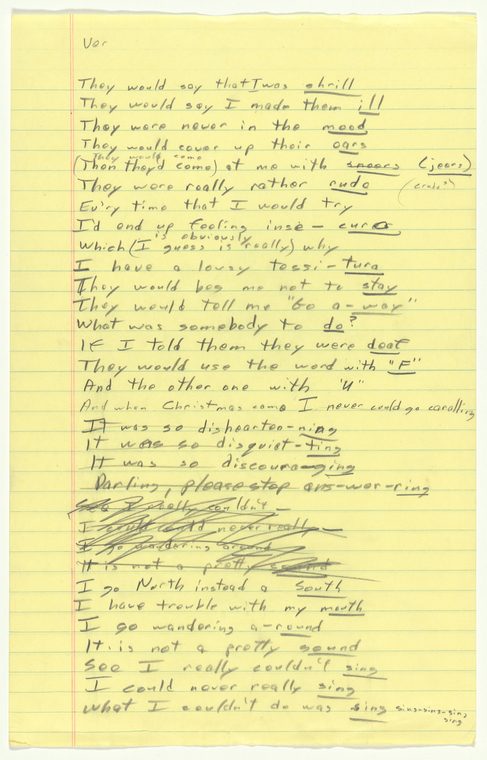 Ver
They would say that I was shrill
They would say I made them ill
They were never in the mood
They would cover up their ears
They would come
(Then they'd come) at me with sneers (jeers)
They were really rather rude
Ev'ry time that I would try
I'd end up feeling inse-cure
is obviously
Which (I guess is really) why
I have a lousy tessi-tura
They would beg me not to stay
They would tell me "Go a-way"
What was somebody to do?
If I told them they were deaf
They would use the word with "F"
And the other one with "U"
And when Christmas came I never could go caralling
It was so dishearten-ning
It was so disquiet-ting
It was so discoura-ging
Darling, please stop ans-wer-ring
See I really couldn't
I could never really
I go wandering around
It is not a pretty sound
I go North instead a South
I have trouble with my mouth
I go wandering a-round
It is not a pretty sound
See I really couldn't sing
I could never really sing
What I couldn't do was sing sing-sing-sing
sing